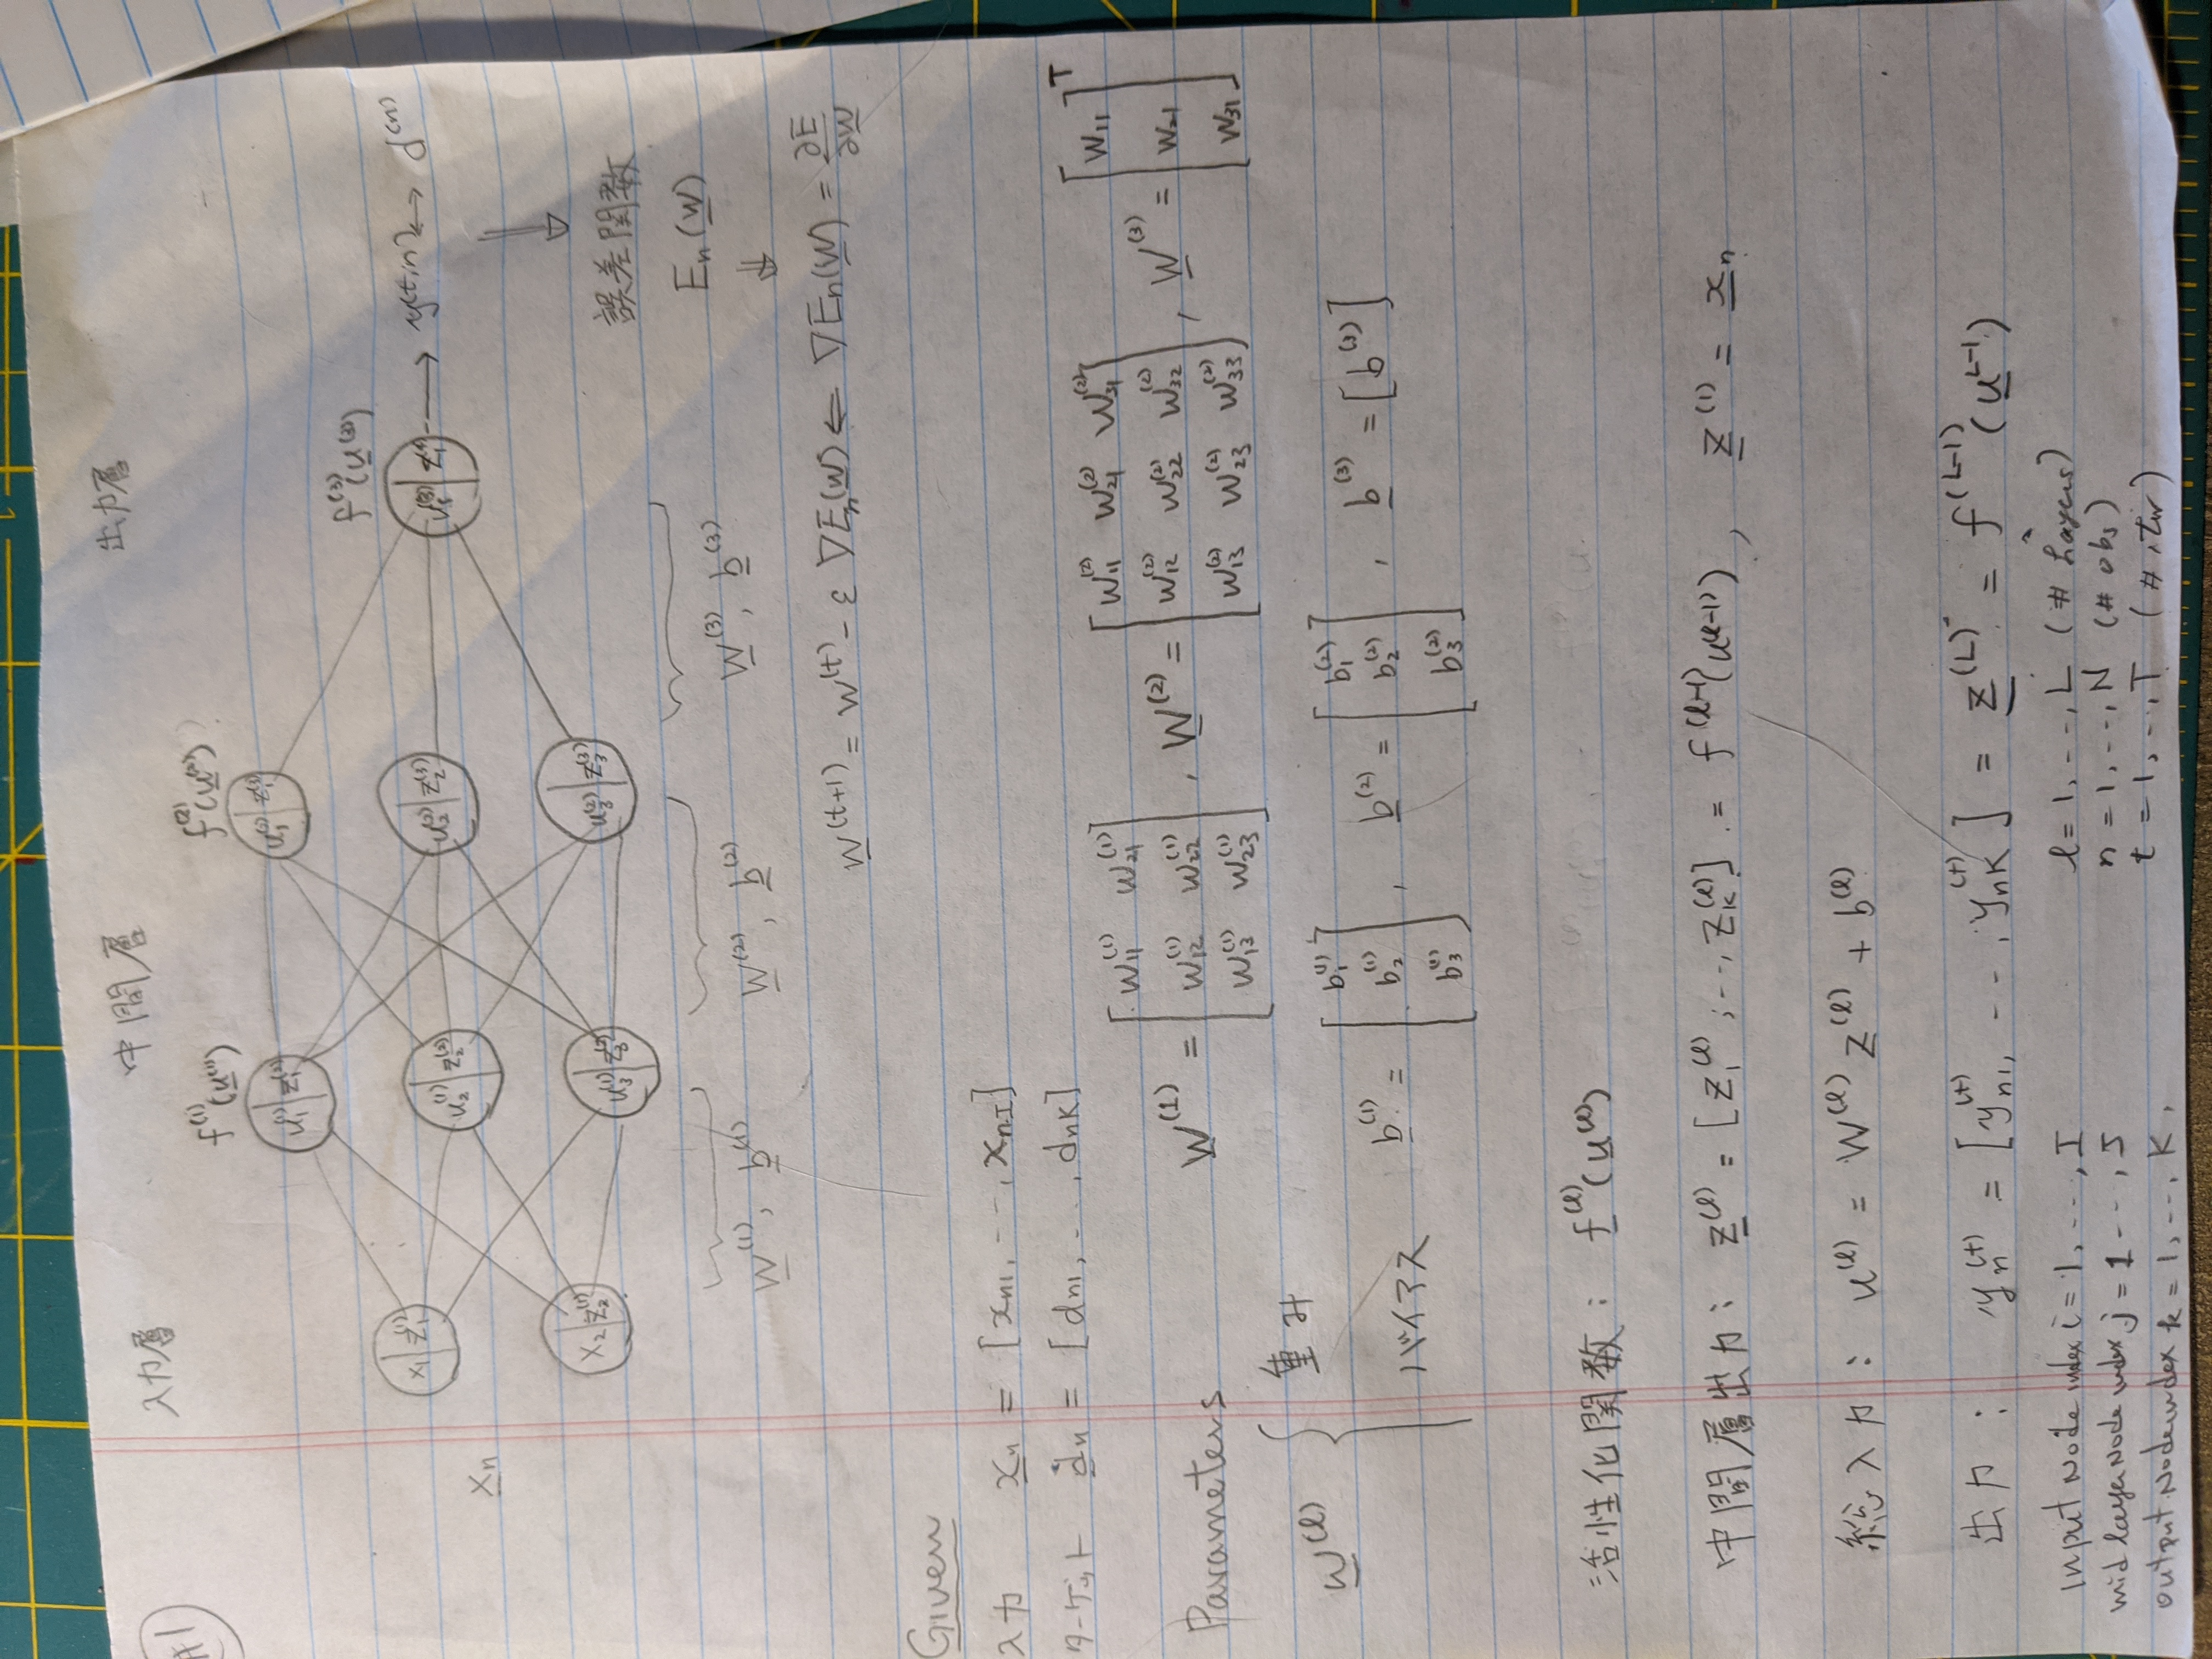 #1
入力層 中間層 出力層
f^(1)(u^(1)) f^(2)(u^(2))
f^(3)(u^(3))
u_1^(1) | z_1^(2) u_1^(2) | z_1^(3)
x_1 | z_1^(1) u_2^(1) | z_2^(2) u_2^(2) | z_2^(3) z_1^(4) → y(t,n) ↔ d^(n)
x_n
x_2 | z_2^(1) u_3^(1) | z_3^(2) u_3^(2) | z_3^(3)
⇓
誤差関数
E_n(w)
⇓
W^(1), b^(1) W^(2), b^(2) W^(3), b^(3)
w^(t+1) = w^(t) - ε ∇E_n(w) ⇐ ∇E_n(w) = ∂E/∂w
Given
入力 x_n = [x_n1, ---, x_nI]
ターゲット d_n = [d_n1, ---, d_nK]
Parameters
W^(1) = [w_11^(1) w_21^(1)
w_12^(1) w_22^(1)
w_13^(1) w_23^(1)]
, W^(2) = [w_11^(2) w_21^(2) w_31^(2)
w_12^(2) w_22^(2) w_32^(2)
w_13^(2) w_23^(2) w_33^(2)]
, W^(3) = [w_11
w_21
w_31]^T
w^(l) { 重み
バイアス b^(1) = [b_1^(1)
b_2^(1)
b_3^(1)]
, b^(2) = [b_1^(2)
b_2^(2)
b_3^(2)]
, b^(3) = [b^(3)]
活性化関数: f^(l)(u^(l))
中間層出力: z^(l) = [z_1^(l), --, z_K^(l)] = f^(l-1)(u^(l-1)), z^(1) = x_n
総入力: u^(l) = W^(l) z^(l) + b^(l)
出力: y_n^(t) = [y_n1^(t), ---, y_nK^(t)] = z^(L) = f^(L-1)(u^L-1)
Input Node index i = 1, ---, I l = 1, ---, L (# Layers)
mid layer Node index j = 1 ---, J n = 1, --, N (# obs)
output Node index k = 1, --, K, t = 1, --, T (# iter)